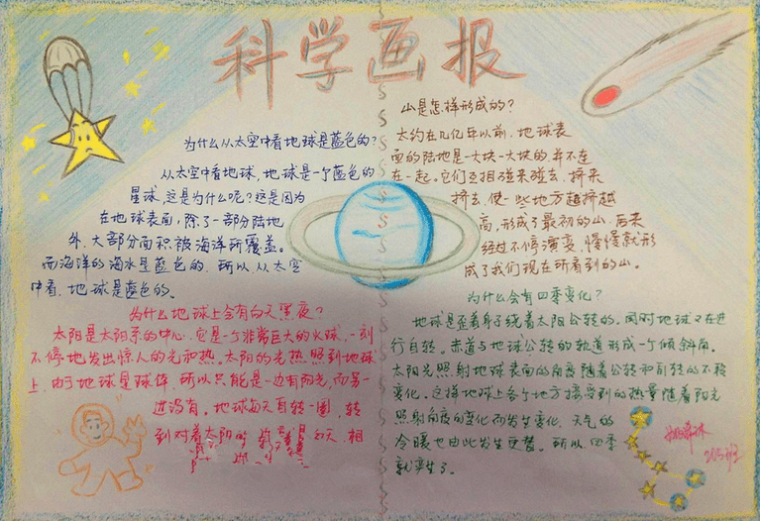 科学画报
为什么从太空中看地球是蓝色的?
从太空中看地球,地球是一个蓝色的
星球,这是为什么呢?这是因为
在地球表面,除了一部分陆地
外,大部分面积被海洋所覆盖。
而海洋的海水是蓝色的,所以,从太空
中看,地球是蓝色的。
为什么地球上会有白天黑夜?
太阳是太阳系的中心,它是一个非常巨大的火球,一刻
不停地发出惊人的光和热。太阳的光热照到地球
上,由于地球是球体,所以只能是一边有阳光,而另一
边没有。地球每天自转一圈,转
到对着太阳的 是白天,相
山是怎样形成的?
大约在几亿年以前,地球表
面的陆地是一大块一大块的,并不连
在一起。它们互相碰来碰去,挤来
挤去,使一些地方越挤越
高,形成了最初的山,后来
经过不停演变,慢慢就形
成了我们现在所看到的山。
为什么会有四季变化?
地球是歪着身子绕着太阳公转的。同时地球又在进
行自转。赤道与地球公转的轨道形成一个倾斜角。
太阳光照射地球表面的角度随着公转和自转的不段
变化。这样地球上各个地方接受到的热量随着阳光
照射角度的变化而发生变化,天气的
冷暖也由此发生更替。所以,四季
就产生了。